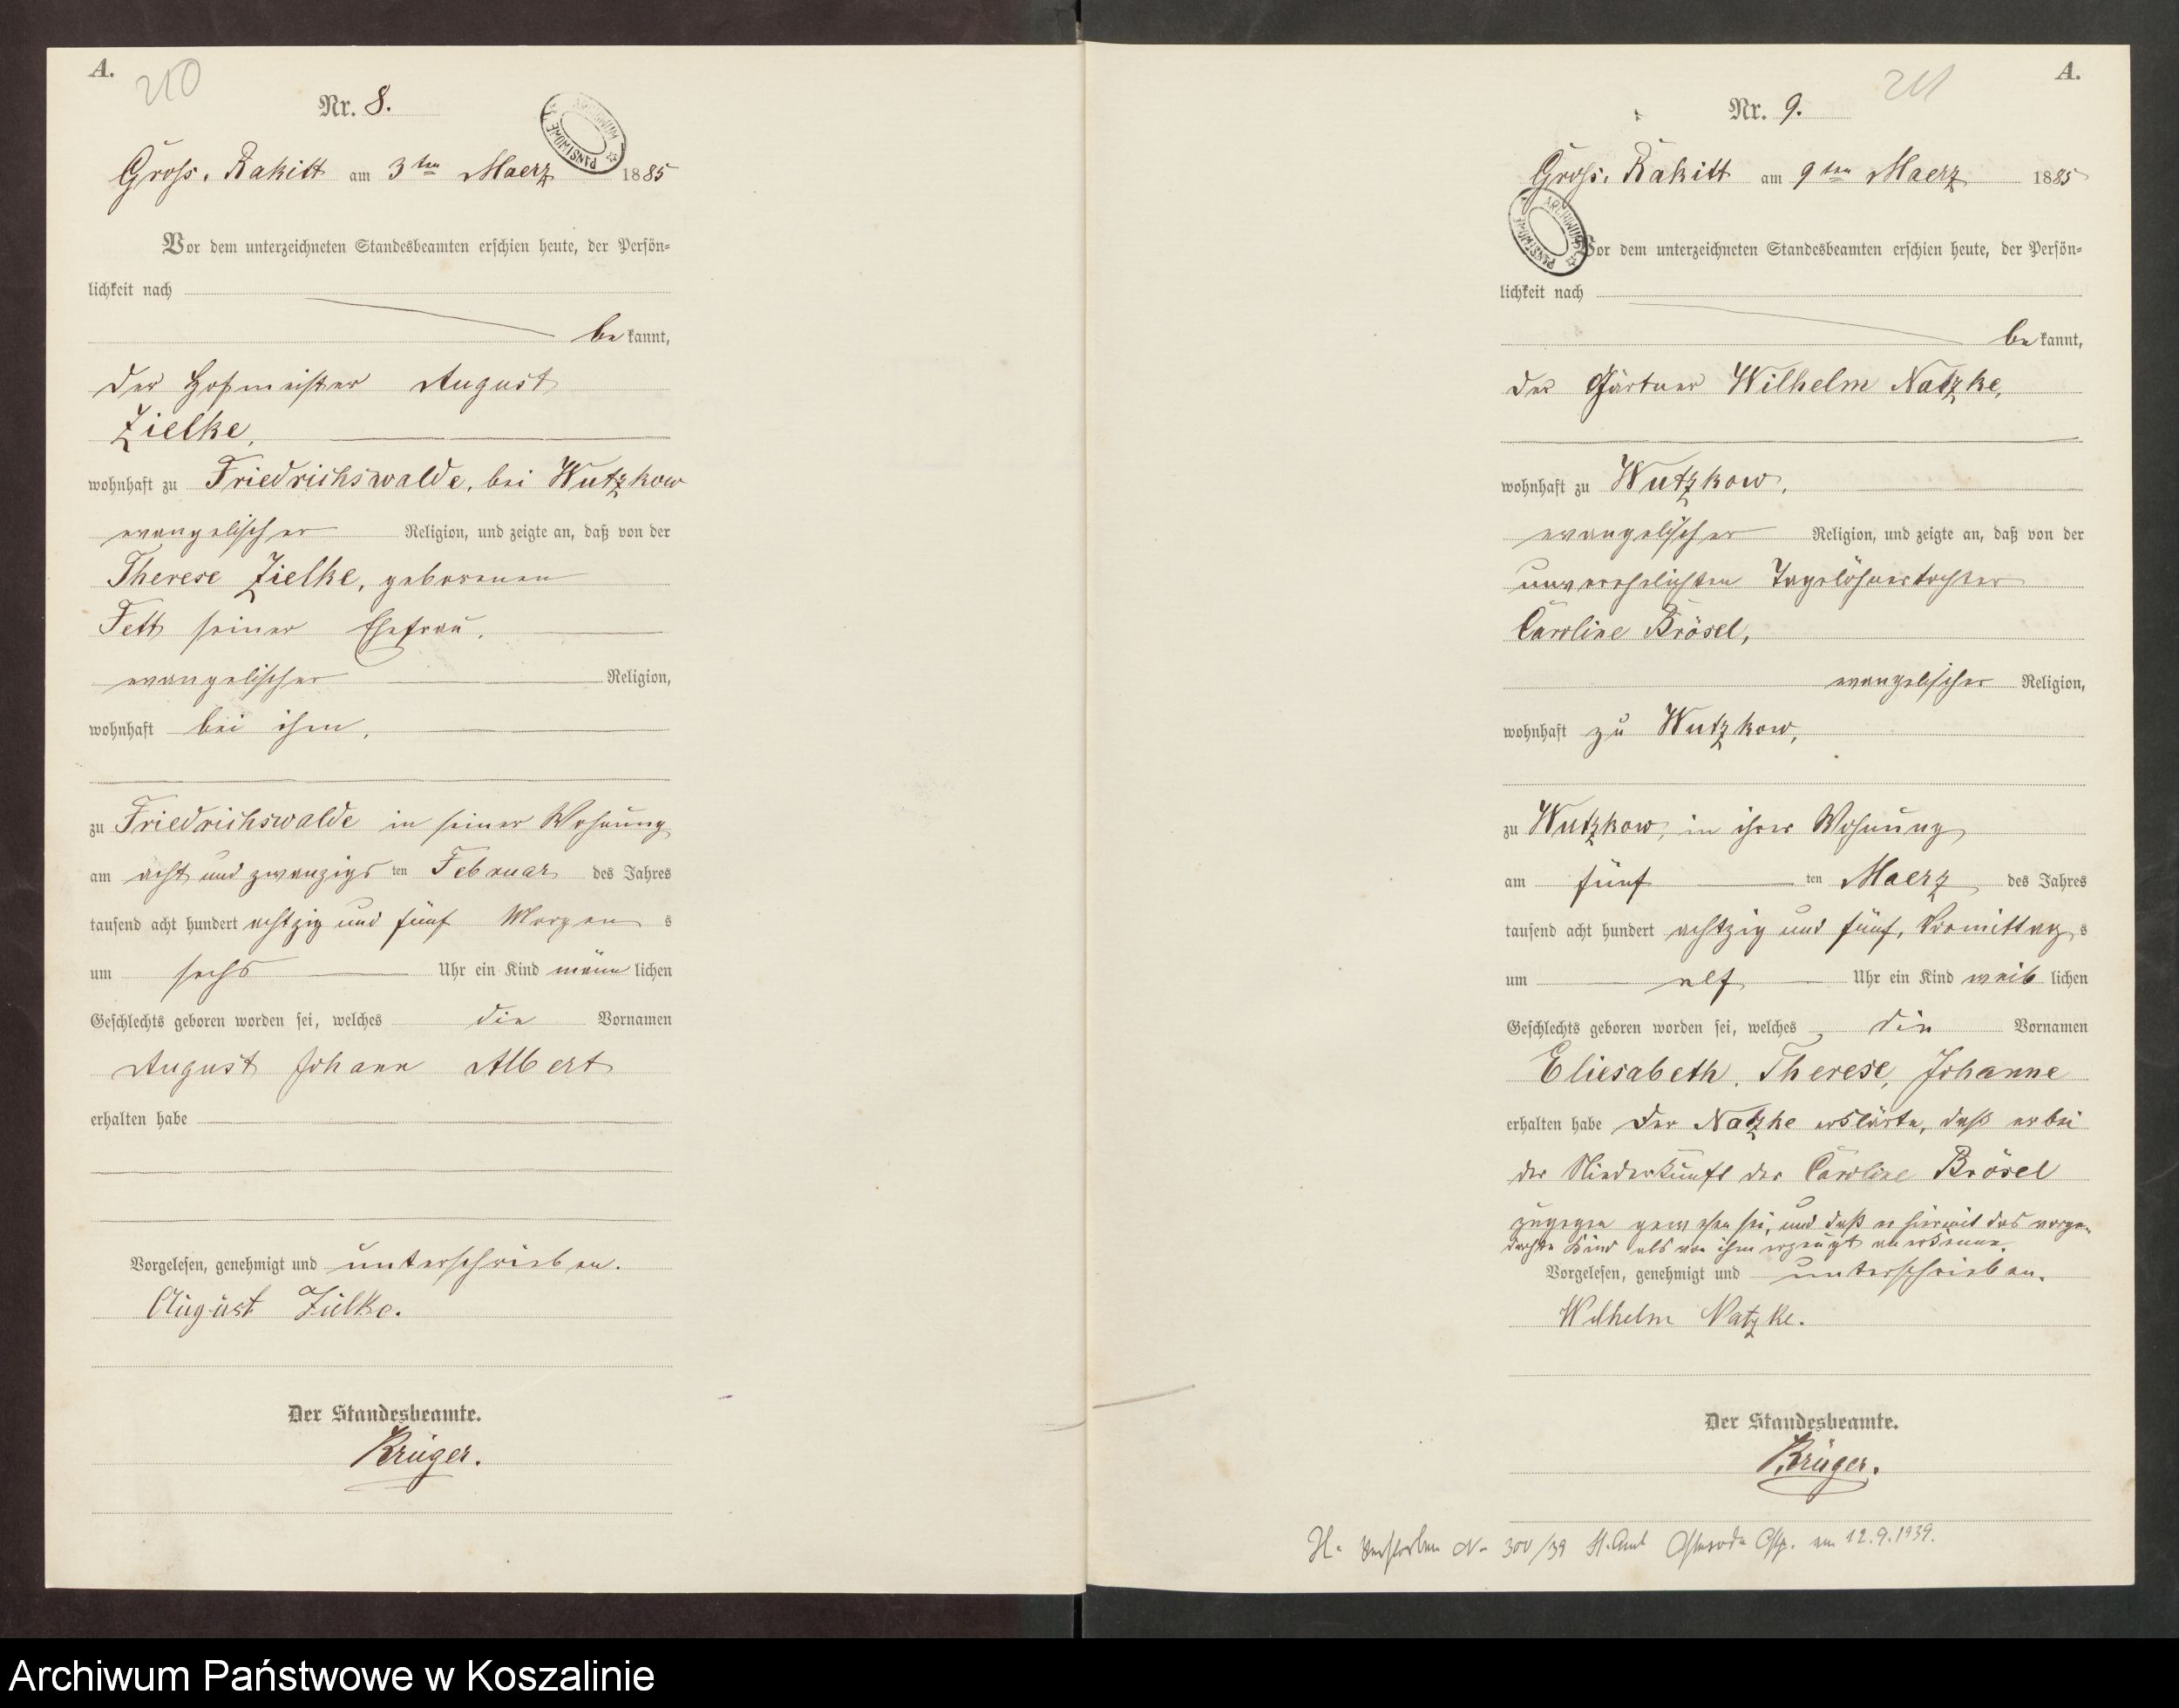 A.
210
Nr. 8.
ARCHIWUM PAŃSTWOWE
Gross. Rakitt am 3ten Maerz 1885
Vor dem unterzeichneten Standesbeamten erschien heute, der Persön-
lichkeit nach
bekannt,
der Hofmeister August
Zielke,
wohnhaft zu Friedrichswalde, bei Wutzkow
evangelischer Religion, und zeigte an, daß von der
Therese Zielke, geborenen
Fett seiner Ehefrau,
evangelischer Religion,
wohnhaft bei ihm,
zu Friedrichswalde in seiner Wohnung
am acht und zwanzigsten Februar des Jahres
tausend acht hundert achtzig und fünf Morgens
um sechs Uhr ein Kind männlichen
Geschlechts geboren worden sei, welches die Vornamen
August Johann Albert
erhalten habe
Vorgelesen, genehmigt und unterschrieben.
August Zülke.
Der Standesbeamte.
Krüger.
A.
211
Nr. 9.
Gross. Rakitt am 9ten Maerz 1885
ARCHIWUM PAŃSTWOWE
Vor dem unterzeichneten Standesbeamten erschien heute, der Persön-
lichkeit nach
bekannt,
der Gärtner Wilhelm Natzke,
wohnhaft zu Wutzkow,
evangelischer Religion, und zeigte an, daß von der
unverehelichten Tagelöhnertochter
Caroline Brösel,
evangelischer Religion,
wohnhaft zu Wutzkow,
zu Wutzkow, in ihrer Wohnung
am fünften Maerz des Jahres
tausend acht hundert achtzig und fünf, Vormittags
um elf Uhr ein Kind weiblichen
Geschlechts geboren worden sei, welches die Vornamen
Eliesabeth, Therese, Johanne
erhalten habe Der Natzke erklärte, daß er bei
der Niederkunft der Caroline Brösel
zugegen gewesen sei, und daß er hiermit das vorge-
dachte Kind als von ihm erzeugt anerkenne.
Vorgelesen, genehmigt und unterschrieben.
Wilhelm Natzke.
Der Standesbeamte.
Krüger.
verstorben No 300/39 St. Amt Osterode Ostp. am 12.9.1939.
Archiwum Państwowe w Koszalinie